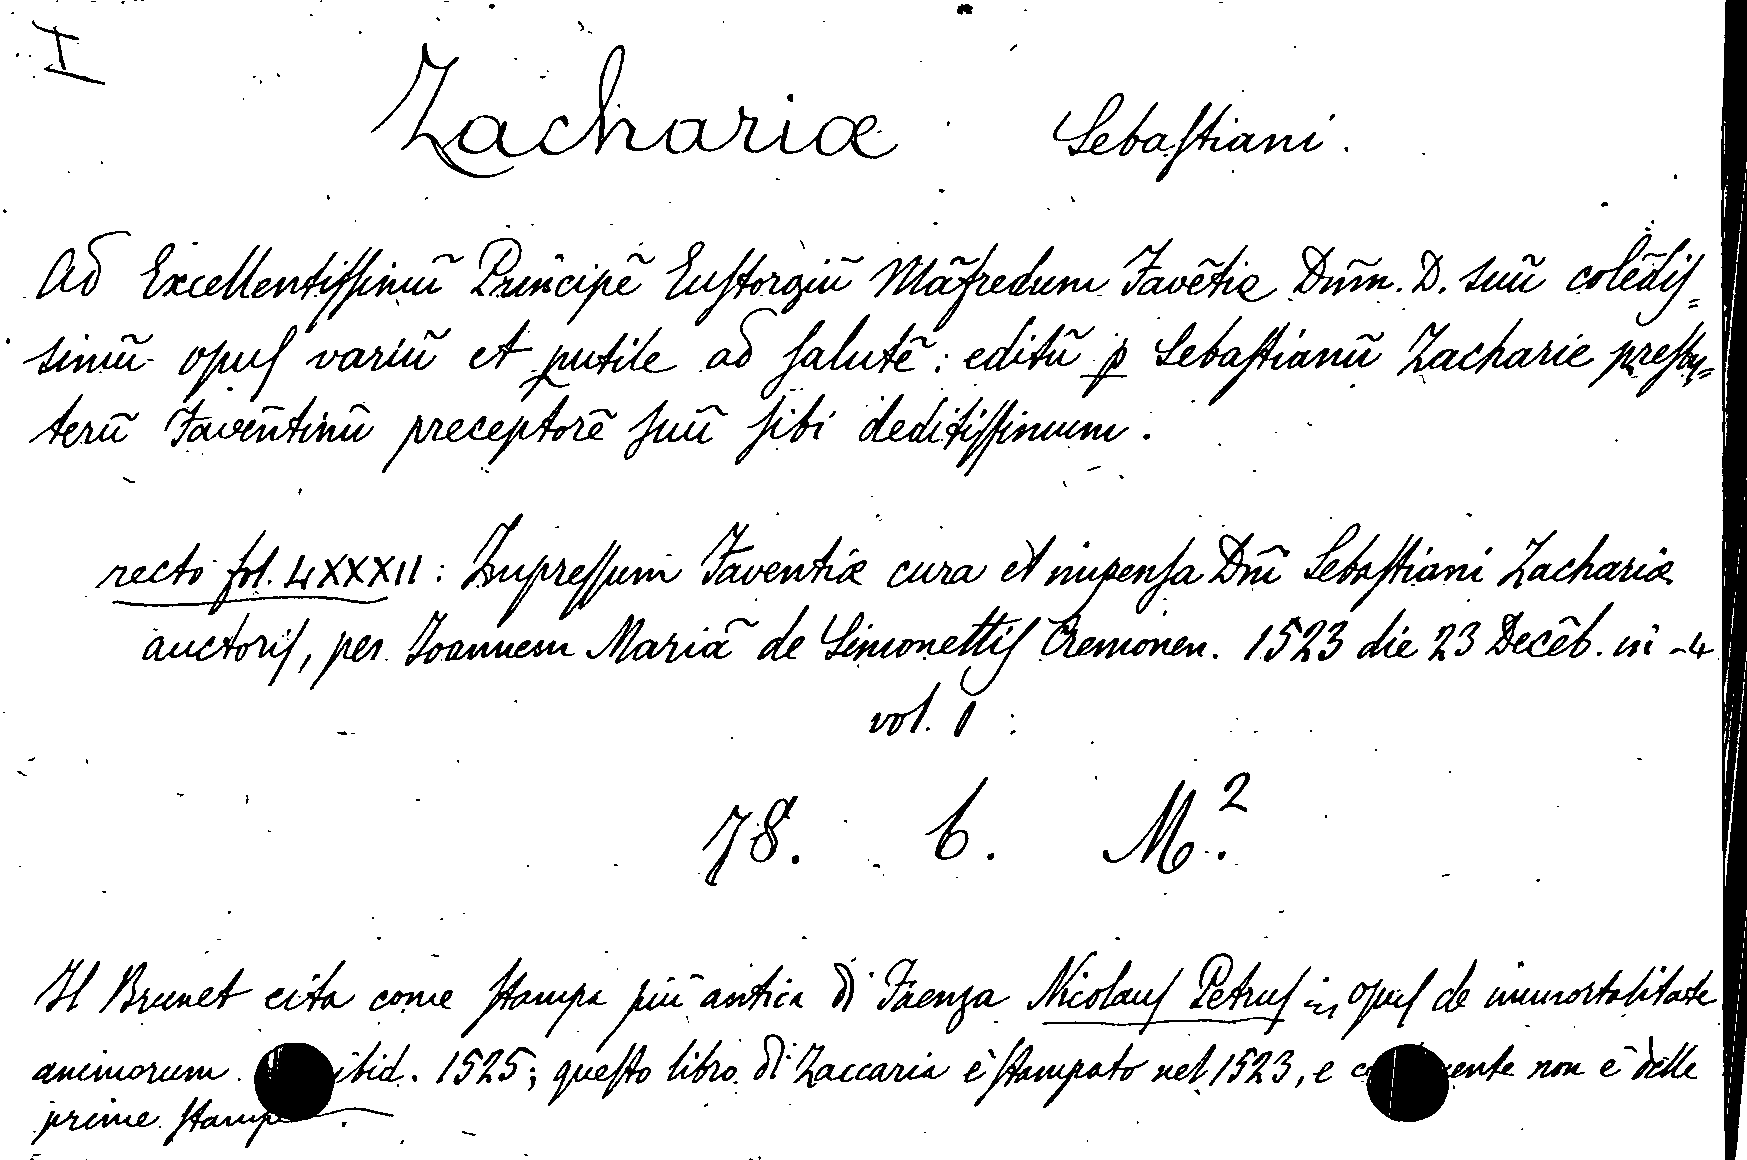 I
Zachariæ Sebaſtiani.
Ad Excellentiſſimū Prīncipē Euſtorgiū Māfredum Favētiæ Dūm. D. suū colēdiſ=
simū opuſ variū et putile ad ſalutē: editū p Sebaſtianū Zacharie preſby=
terū Faventinū preceptorē ſuū ſibi deditiſſimum.
recto fol. LXXXII: Impreſſum Faventiæ cura et impenſa Dnī Sebaſtiani Zachariæ
auctoriſ, per Joannem Mariā de Simonettiſ Cremonen. 1523 die 23 Decēb. in -4
vol. 1
78. 6. M.²
Il Brunet cita come ſtampa più antica di Faenza Nicolauſ Petruſ in opuſ de immortalitate
animorum. ibid. 1525; queſto libro di Zaccaria è ſtampato nel 1523, e non è delle
prime ſtampe